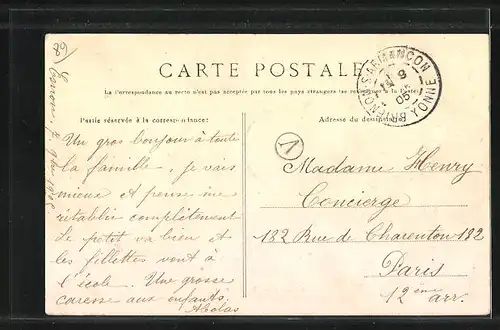 CARTE POSTALE
La correspondance au recto n'est pas acceptée par tous les pays étrangers (se renseigner à la Poste)
Partie réservée à la correspondance:
Adresse du destinataire
BRIENON-S-ARMANÇON
9
05
YONNE
Un gros bonjour à toute
la famille, je vais
mieux et pense me
rétablir complètement
Le petit va bien et
les fillettes vont à
l'école. Une grosse
caresse aux enfants.
V
Madame Henry
Concierge
182 Rue de Charenton 182
Paris
12ème arr.